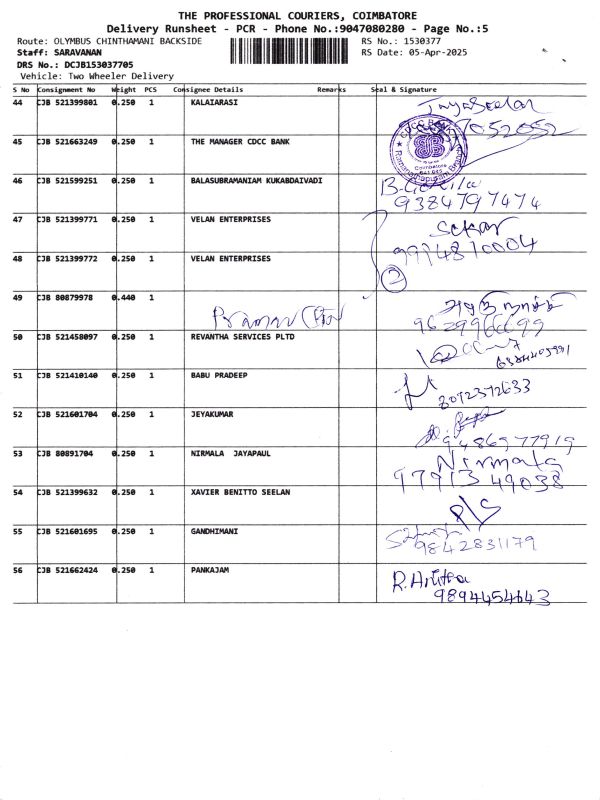 THE PROFESSIONAL COURIERS, COIMBATORE
Delivery Runsheet - PCR - Phone No.:9047080280 - Page No.:5
Route: OLYMBUS CHINTHAMANI BACKSIDE RS No.: 1530377
Staff: SARAVANAN RS Date: 05-Apr-2025
DRS No.: DCJB153037705
Vehicle: Two Wheeler Delivery
S No Consignment No Weight PCS Consignee Details Remarks Seal & Signature
44 CJB 521399801 0.250 1 KALAIARASI
CDCC BANK
Coimbatore
45 CJB 521663249 0.250 1 THE MANAGER CDCC BANK
46 CJB 521599251 0.250 1 BALASUBRAMANIAM KUKABDAIVADI
9384797474
47 CJB 521399771 0.250 1 VELAN ENTERPRISES
Sekar
9994810004
48 CJB 521399772 0.250 1 VELAN ENTERPRISES
2
49 CJB 80879978 0.440 1
9629966699
50 CJB 521458097 0.250 1 REVANTHA SERVICES PLTD
51 CJB 521410140 0.250 1 BABU PRADEEP
8072372633
52 CJB 521601704 0.250 1 JEYAKUMAR
9486977919
53 CJB 80891704 0.250 1 NIRMALA JAYAPAUL
Nirmala
9791349038
54 CJB 521399632 0.250 1 XAVIER BENITTO SEELAN
P/S
55 CJB 521601695 0.250 1 GANDHIMANI
9842831179
56 CJB 521662424 0.250 1 PANKAJAM
R. Anitha
9894454643